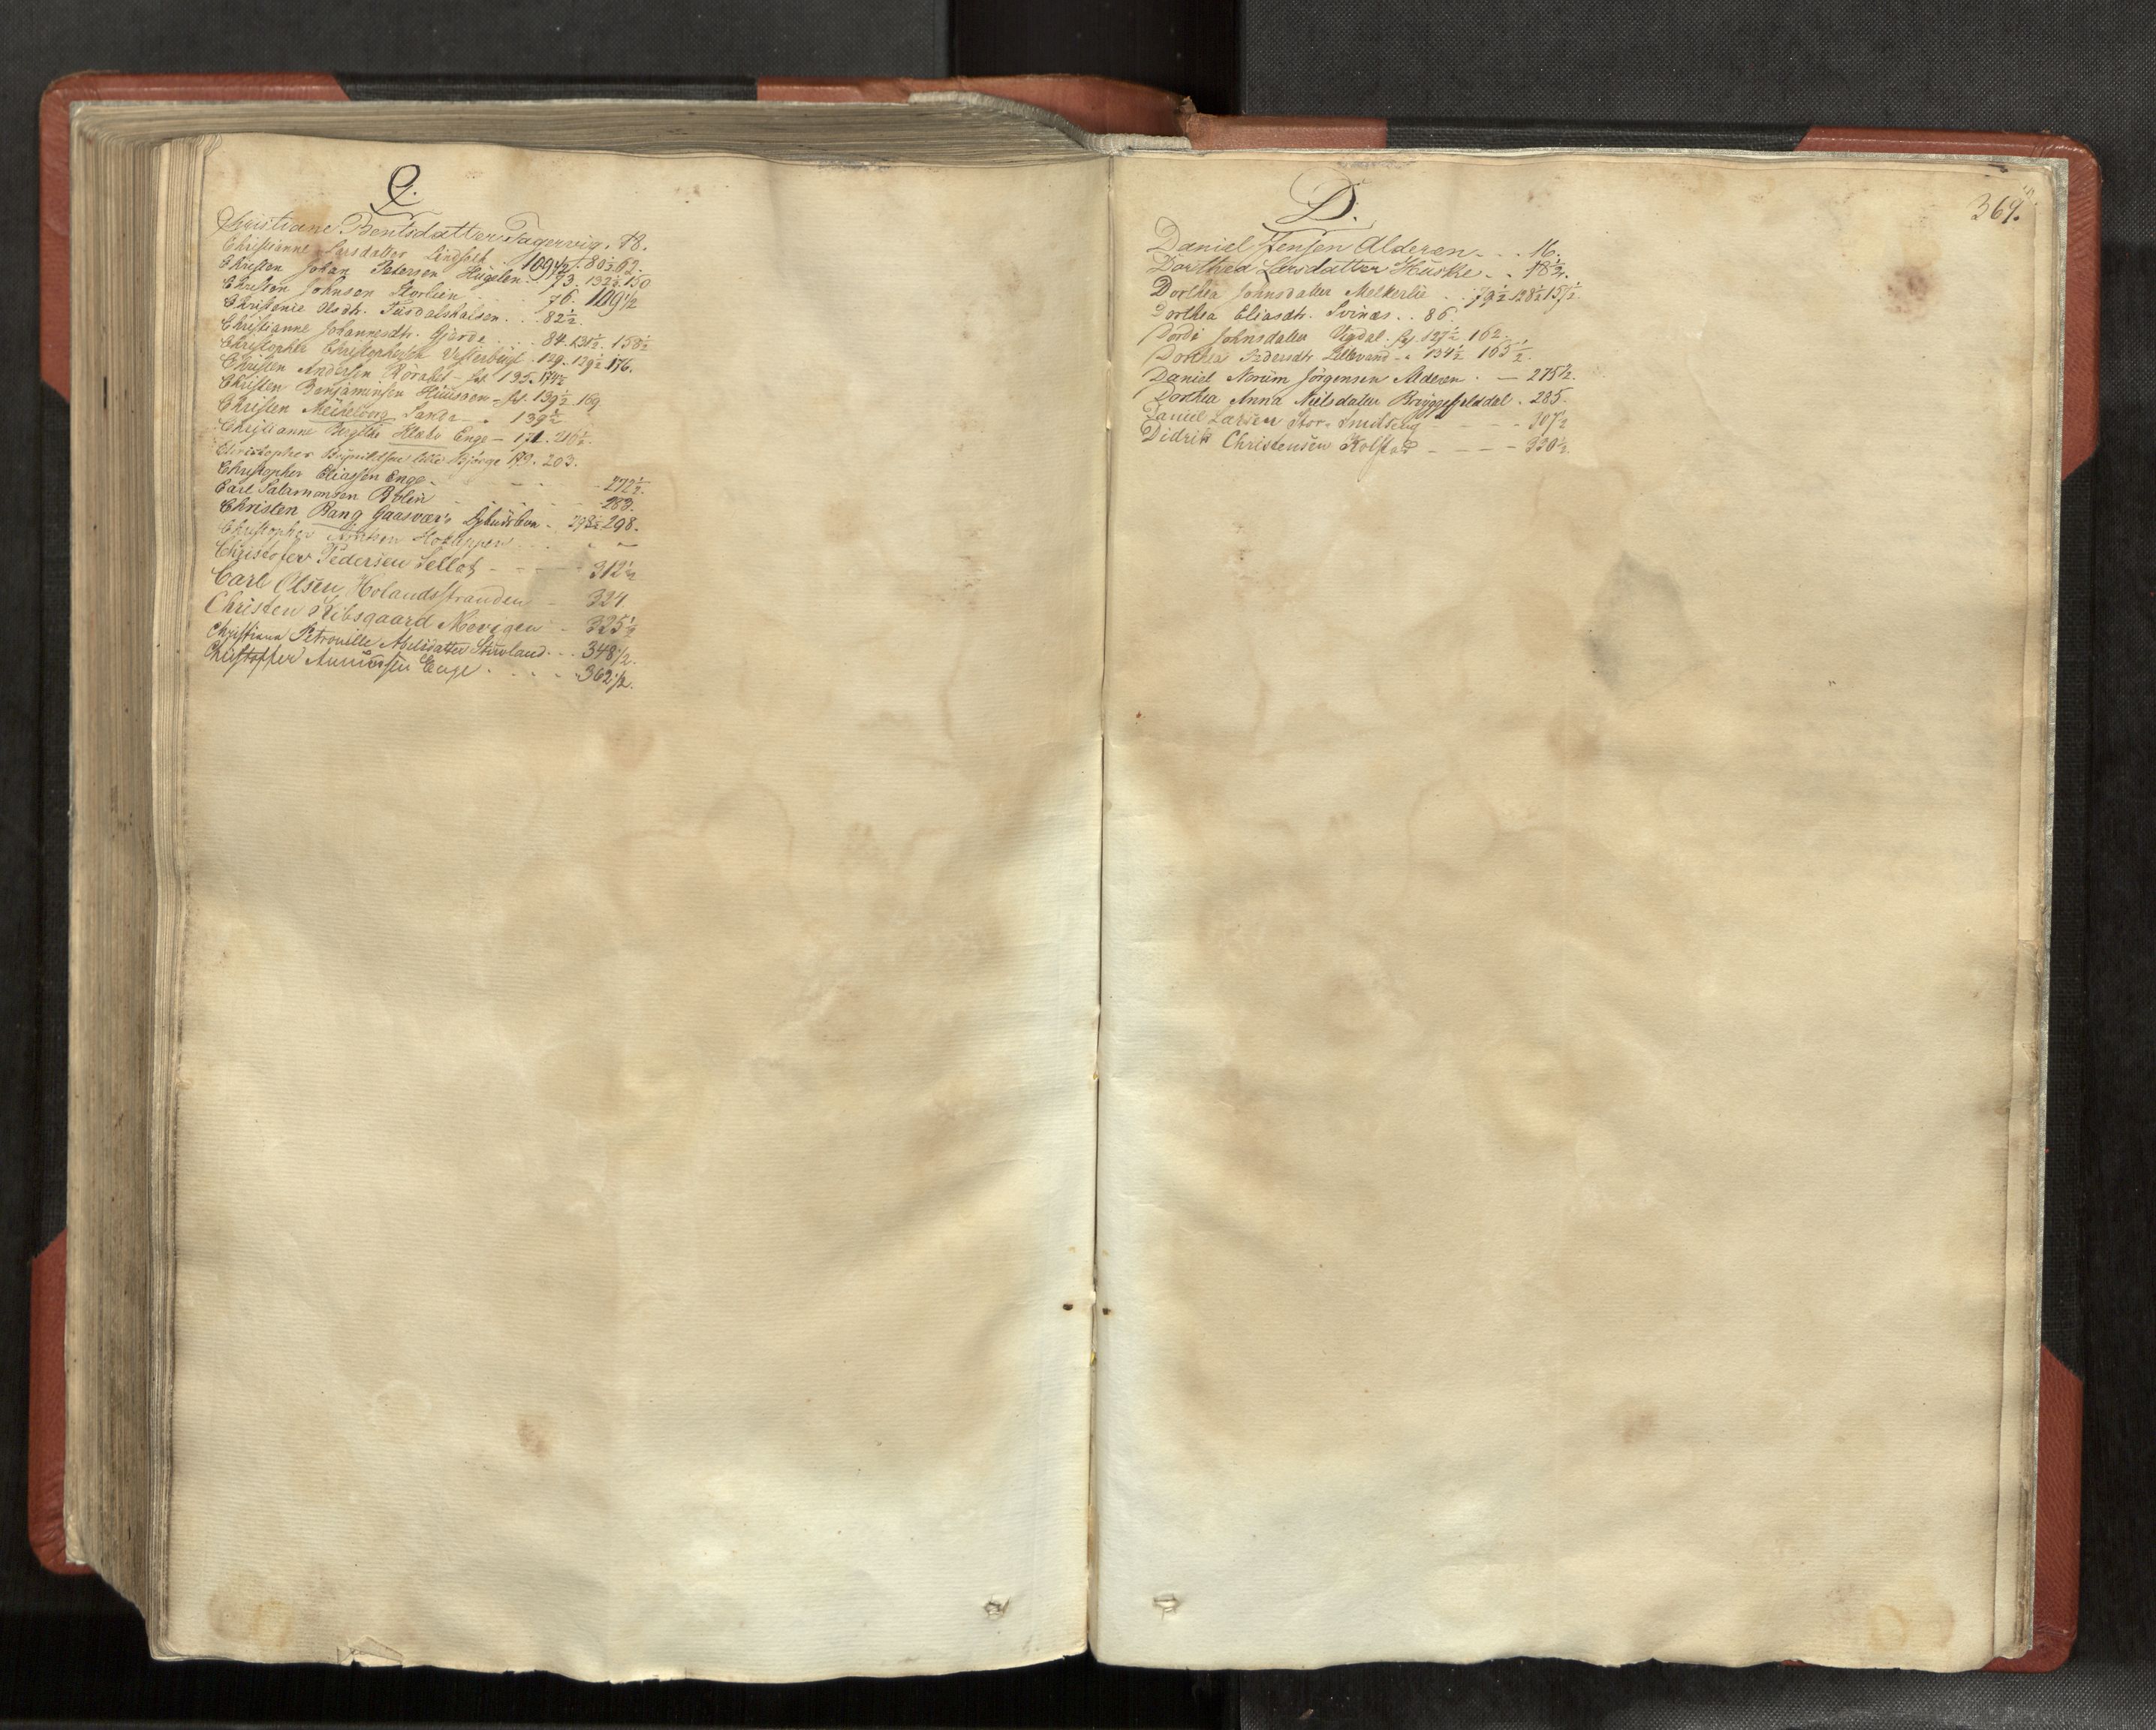 C.
Christiane Bentsdatter Fagervig. 78.
Christianne Larsdatter Lindseth . 109 1/2. 80 1/2 62.
Christen Johan Petersen Hügelen . 73. 132 1/2. 150
Christen Johnsen Storlien . . 76. 109 1/2
Christence Olsdtr. Fusdalshalsen . . 82 1/2.
Christianne Johannesdtr. Gjerde . . . 84. 131 1/2. 158 1/2
Christopher Christophersen 129. 129 1/2 176.
Christen Andersen Röraket - fol. 135. 174 1/2
Christen Benjaminsen - fol. 139 1/2 169
Christen Meihelborg Sande - 139 1/2
Christianne Enge - 171. 216 1/2.
Christopher Brynildsen Lille Björge 179. 203.
Christopher Eliassen Enge - - - - 272 1/2.
Carl Salamonsen - - - 283.
Christen Bang Gaasvær 298.
Christopher
Christofer Pedersen Sellot - - - - 312 1/2
Carl Olsen Holandsstranden - 324
Christen Kibsgaard Nevigen - 325 1/2
Christiana Petronille Stuvland . . 348 1/2.
Christoffer Enge . . . . 362 1/2.
369.
D.
Daniel Jensen Alderen . . . 16.
Dorthea Larsdatter Huske . . 78 1/2.
Dorthea Johnsdatter Melkerlie . . 79 1/2 128 1/2 157 1/2
Dorthea Eliasdtr. Svinæs . . 86.
Dordi Johnsdatter Ugdal . fol. 127 1/2. 162.
Dorthea Pedersdtr. Lillevand - " 134 1/2 165 1/2.
Daniel Norum Jörgensen Alderen . — 275 1/2.
Dorthea Anna Nielsdatter Bryggefjelddal . 285.
Daniel Larsen Stor - - - 307 1/2
Didrik Christensen Kolstad - - - - 320 1/2.